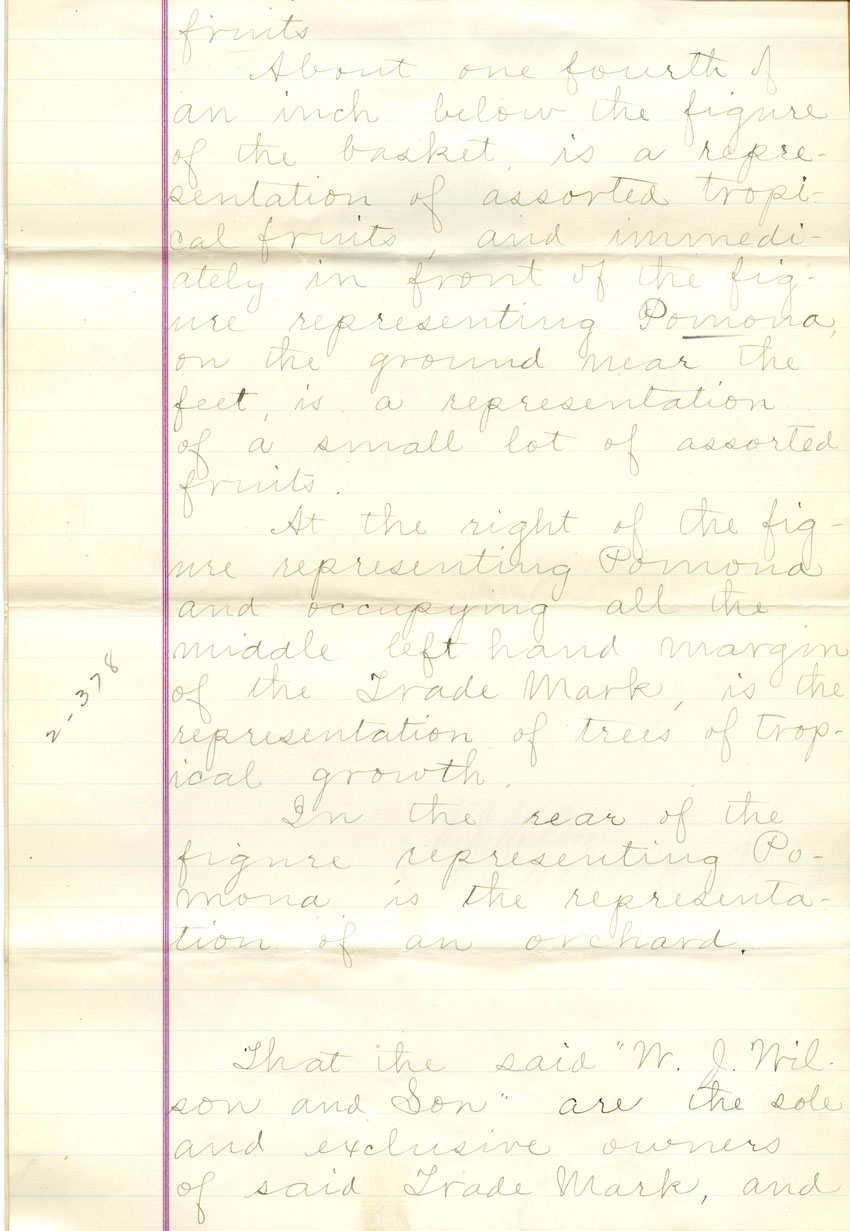 fruits
About one fourth of
an inch below the figure
of the basket, is a repre-
sentation of assorted tropi-
cal fruits, and immedi-
ately in front of the fig-
ure representing Pomona,
on the ground near the
feet, is a representation
of a small lot of assorted
fruits.
At the right of the fig-
ure representing Pomona
and occupying all the
middle left hand margin
of the Trade Mark, is the
representation of trees of trop-
ical growth.
In the rear of the
figure representing Po-
mona is the representa-
tion of an orchard.
2-378
That the said "W. J. Wil-
son and Son" are the sole
and exclusive owners
of said Trade Mark, and